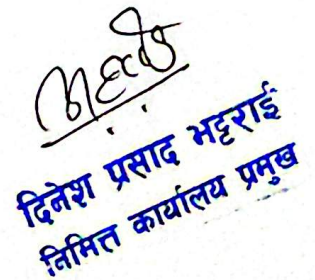 दिनेश प्रसाद भट्टराई
निमित्त कार्यालय प्रमुख